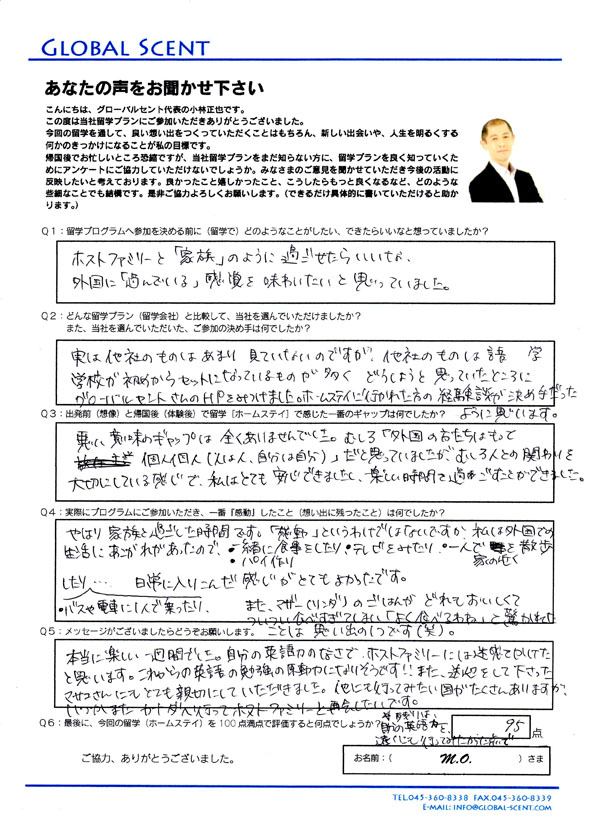 GLOBAL SCENT
あなたの声をお聞かせ下さい
こんにちは、グローバルセント代表の小林正也です。
この度は当社留学プランにご参加いただきありがとうございました。
今回の留学を通して、良い想い出をつくっていただくことはもちろん、新しい出会いや、人生を明るくする
何かのきっかけになることが私の目標です。
帰国後でお忙しいところ恐縮ですが、当社留学プランをまだ知らない方に、留学プランを良く知っていくた
めにアンケートにご協力していただけないでしょうか。みなさまのご意見を聞かせていただき今後の活動に
反映したいと考えております。良かったこと嬉しかったこと、こうしたらもっと良くなるなど、どのような
些細なことでも結構です。是非ご協力よろしくお願いします。（できるだけ具体的に書いていただけると助か
ります。）
Q1：留学プログラムへ参加を決める前に（留学で）どのようなことがしたい、できたらいいなと想っていましたか？
ホストファミリーと「家族」のように過ごせたらいいな、
外国に「住んでいる」感覚を味わいたいと思っていました。
Q2：どんな留学プラン（留学会社）と比較して、当社を選んでいただけましたか？
また、当社を選んでいただいた、ご参加の決め手は何でしたか？
実は他社のものはあまり見ていないのですが、他社のものは語学
学校が初めからセットになっているものが多く どうしようと思っていたところに
グローバルセントさんのHPをみつけました。ホームステイに行かれた方の経験談が決め手だった
ように思います。
Q3：出発前（想像）と帰国後（体験後）で留学［ホームステイ］で感じた一番のギャップは何でしたか？
悪い意味のギャップは全くありませんでした。むしろ「外国の方たちはもっと
個人個人（人は人、自分は自分）」だと思っていましたが むしろ人との関わりを
大切にしている感じで、私はとても安心できましたし、楽しい時間を過ごすことができました。
Q4：実際にプログラムにご参加いただき、一番『感動』したこと（想い出に残ったこと）は何でしたか？
やはり家族と過ごした時間です。「感動」というわけではないですが、私は外国での
生活にあこがれがあったので、・一緒に食事をしたり・テレビをみたり・一人で 家の近くを散歩
・パイ作り
したり… 日常に入りこんだ感じがとてもよかったです。
・バスや電車に1人で乗ったり、 また、マザー（リンダ）のごはんが どれもおいしくて
ついつい食べすぎてしまい「よく食べるわね」と驚かれた
ことも思い出の1つです（笑）。
Q5：メッセージがございましたらどうぞお願いします。
本当に楽しい一週間でした。自分の英語力のなさで、ホストファミリーには迷惑をかけた
と思います。これからの英語の勉強の原動力になりそうです!!また、送迎をして下さった
マサコさんにもとても親切にしていただきました。他にも行ってみたい国がたくさんありますが、
いつかまたカナダへ行ってホストファミリーと再会したいです。
Q6：最後に、今回の留学（ホームステイ）を100点満点で評価すると何点でしょうか？
95 点
ご協力、ありがとうございました。
お名前：（ M.O. ）さま
TEL.045-360-8338 FAX.045-360-8339
E-MAIL: INFO@GLOBAL-SCENT.COM